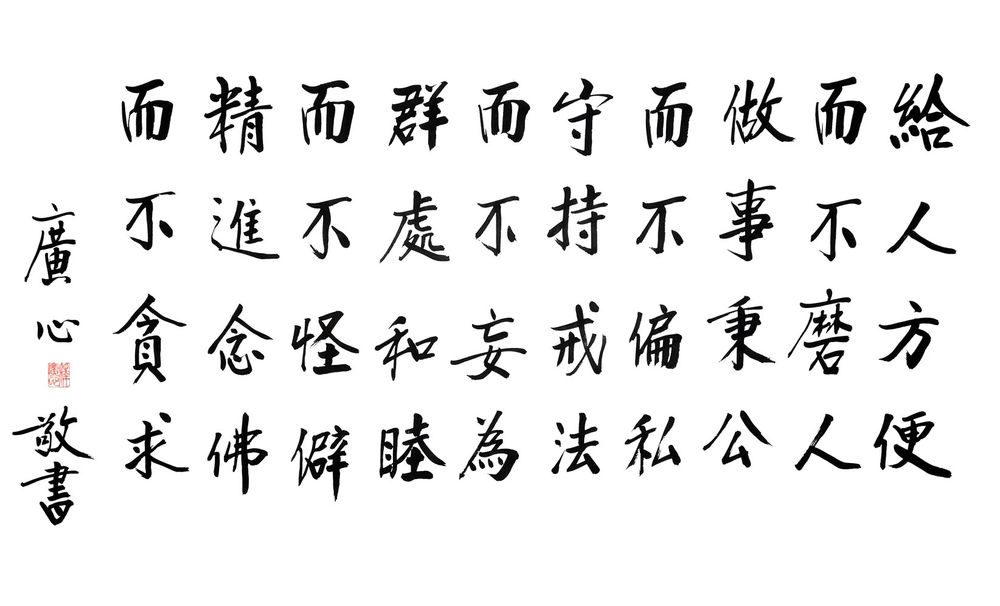 給人方便
而不磨人
做事秉公
而不偏私
守持戒法
而不妄為
群處和睦
而不怪僻
精進念佛
而不貪求
廣心敬書